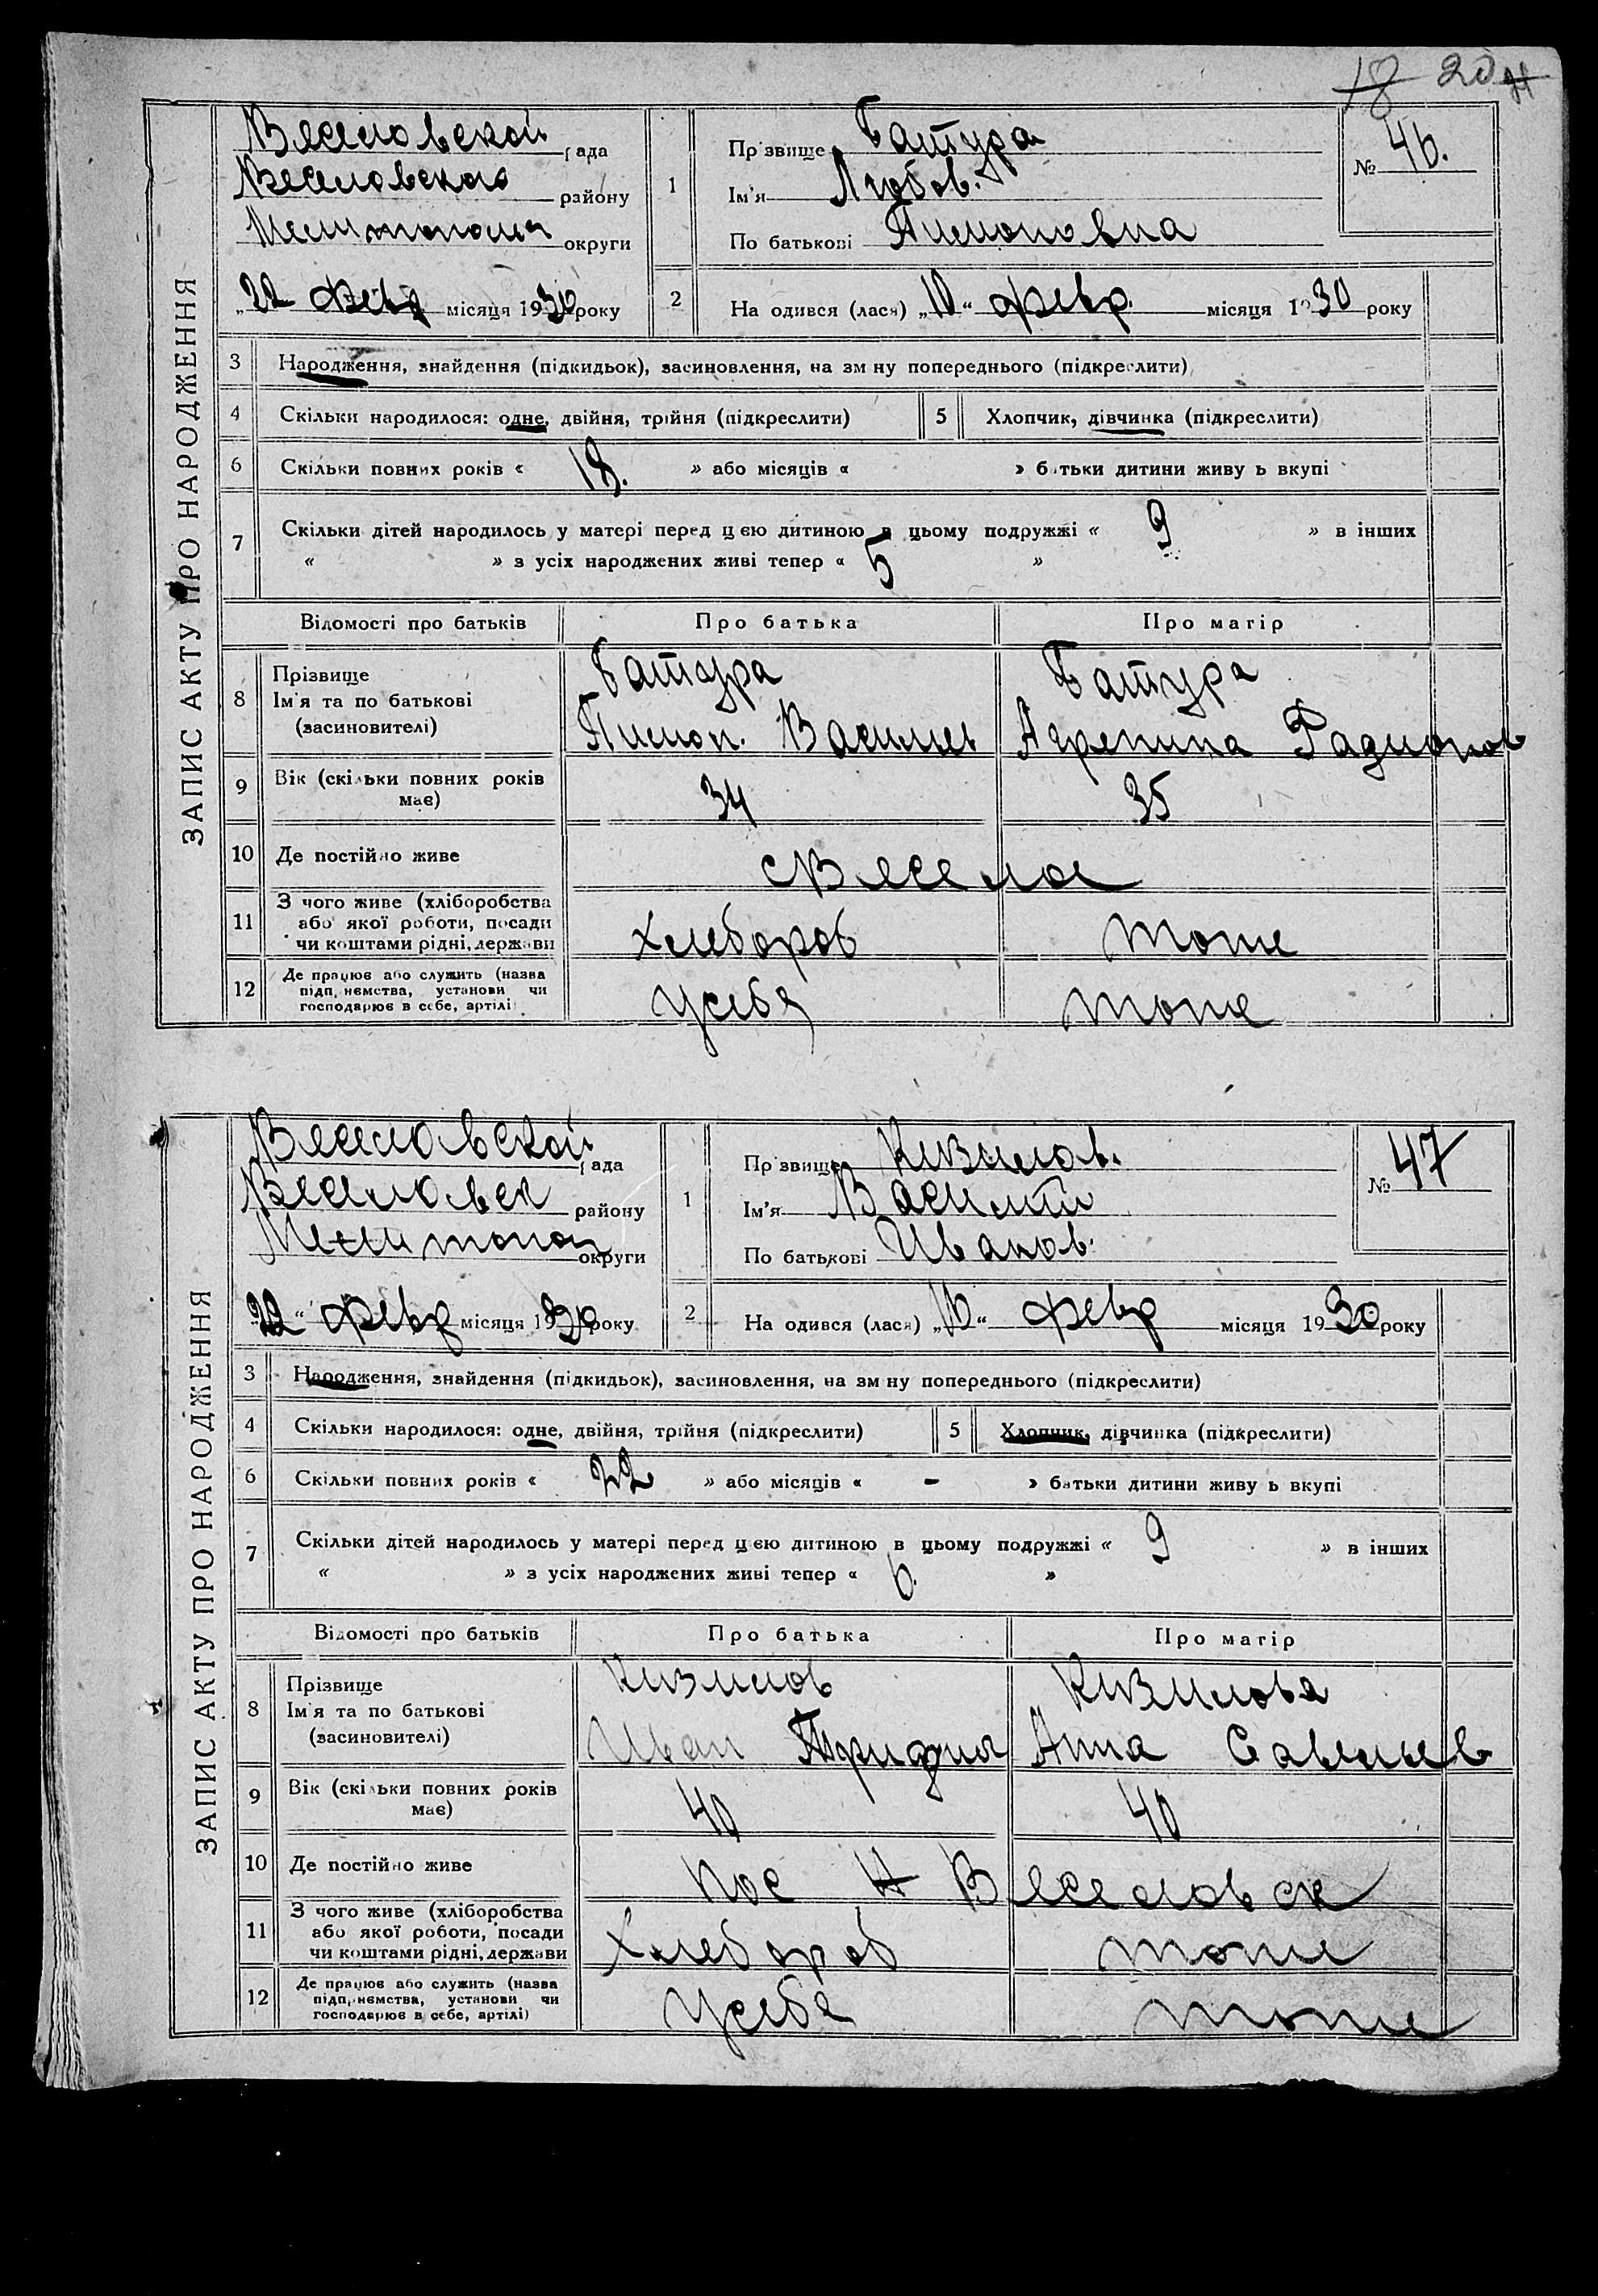 18 20
ЗАПИС АКТУ ПРО НАРОДЖЕННЯ
Веселовской рада
Веселовского району
округи
„22 Февр місяця 1930 року
1
Прізвище Батура
Ім'я Любов.
По батькові Пимоновна
№ 46.
2
На одився (лася) „10“ февр. місяця 1930 року
3 Народження, знайдення (підкидьок), засиновлення, на зм ну попереднього (підкреслити)
4 Скільки народилося: одне, двійня, трійня (підкреслити) 5 Хлопчик, дівчинка (підкреслити)
6 Скільки повних років « 18. » або місяців « » батьки дитини живу ь вкупі
7 Скільки дітей народилось у матері перед цією дитиною в цьому подружжі « 9 » в інших
« » з усіх народжених живі тепер « 5 »
Відомості про батьків Про батька Про матір
8 Прізвище
Ім'я та по батькові
(засиновителі)
Батура Батура
Пимон. Васильев Агрепина Радионов
9 Вік (скільки повних років
має)
34 35
10 Де постійно живе
с Веселое
11 З чого живе (хліборобства
або якої роботи, посади
чи коштами рідні, держави
Хлебороб тоже
12 Де працює або служить (назва
підп, иємства, установи чи
господарює в себе, артілі)
у себя тоже
ЗАПИС АКТУ ПРО НАРОДЖЕННЯ
Веселовской рада
Веселовск району
Мелитопол округи
22“ февр місяця 1930 року
1
Прізвище Кизилов.
Ім'я Василий
По батькові Иванов.
№ 47
2
На одився (лася) „10“ февр місяця 1930 року
3 Народження, знайдення (підкидьок), засиновлення, на зм ну попереднього (підкреслити)
4 Скільки народилося: одне, двійня, трійня (підкреслити) 5 Хлопчик, дівчинка (підкреслити)
6 Скільки повних років « 22 » або місяців « - » батьки дитини живу ь вкупі
7 Скільки дітей народилось у матері перед цією дитиною в цьому подружжі « 9 » в інших
« » з усіх народжених живі тепер « 6. »
Відомості про батьків Про батька Про матір
8 Прізвище
Ім'я та по батькові
(засиновителі)
Кизилов Кизилова
Иван Анна Савельев
9 Вік (скільки повних років
має)
40 40
10 Де постійно живе
пос Н Веселовск
11 З чого живе (хліборобства
або якої роботи, посади
чи коштами рідні, держави
Хлебороб тоже
12 Де працює або служить (назва
підп, иємства, установи чи
господарює в себе, артілі)
у себя тоже